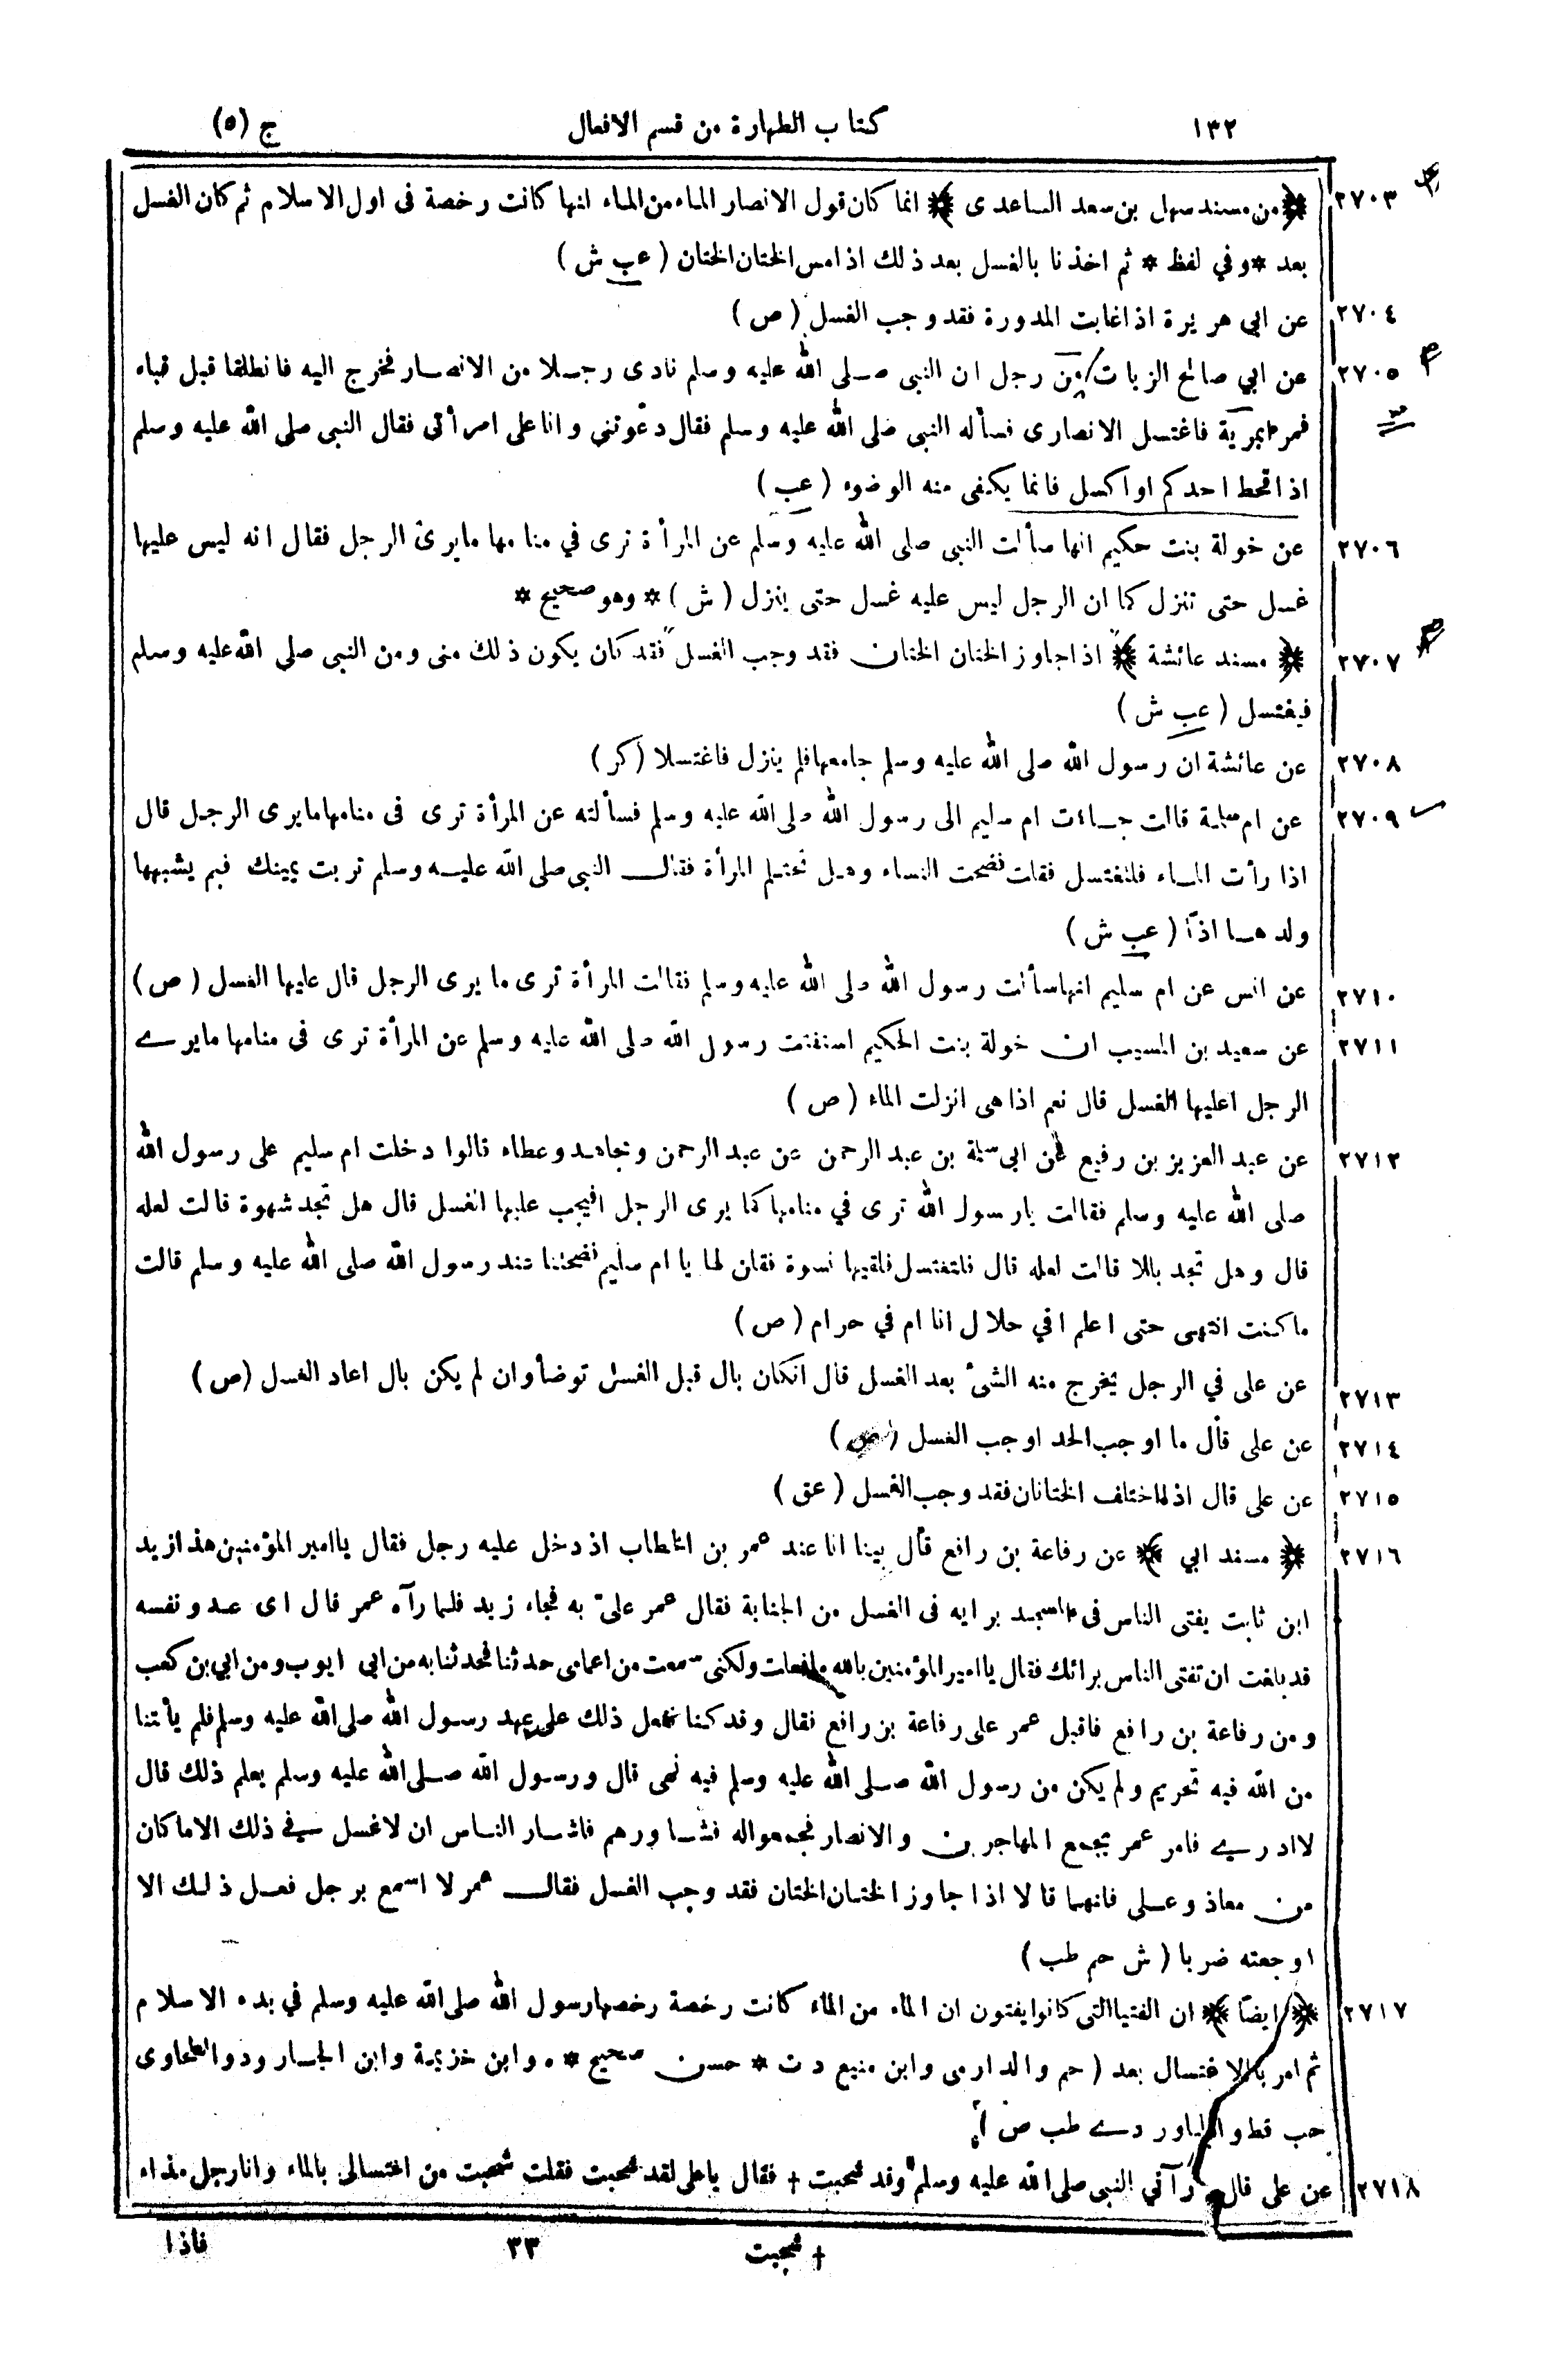 ١٣٢ كتاب الطهارة من قسم الافعال ج (٥)
٢٧٠٣ ﴿من مسند سهل بن سعد الساعدى﴾ انما كان قول الانصار الماء من الماء انها كانت رخصة فى اول الاسلام ثم كان الغسل
بعد * وفي لفظ * ثم اخذنا بالغسل بعد ذلك اذا مس الختان الختان (عب ش)
٢٧٠٤ عن ابي هريرة اذا غابت المدورة فقد وجب الغسل (ص)
٢٧٠٥ عن ابي صالح الزيات من رجل ان النبى صلى الله عليه وسلم نادى رجلا من الانصار فخرج اليه فانطلقا قبل قباء
فمر بمرية فاغتسل الانصارى فسأله النبى صلى الله عليه وسلم فقال دعوتني وانا على امرأتى فقال النبى صلى الله عليه وسلم
اذا اقحط احدكم او اكسل فانما يكفى منه الوضوء (عب)
٢٧٠٦ عن خولة بنت حكيم انها سألت النبى صلى الله عليه وسلم عن المرأة ترى في منامها ما يرى الرجل فقال انه ليس عليها
غسل حتى تنزل كما ان الرجل ليس عليه غسل حتى ينزل (ش) * وهو صحيح *
٢٧٠٧ ﴿مسند عائشة﴾ اذا جاوز الختان الختان فقد وجب الغسل فقد كان يكون ذلك منى ومن النبى صلى الله عليه وسلم
فيغتسل (عب ش)
٢٧٠٨ عن عائشة ان رسول الله صلى الله عليه وسلم جامعها فلم ينزل فاغتسلا (كر)
٢٧٠٩ عن ام سلمة قالت جاءت ام سليم الى رسول الله صلى الله عليه وسلم فسألته عن المرأة ترى فى منامها ما يرى الرجل قال
اذا رأت الماء فلتغتسل فقلت فضحت النساء وهل تحتلم المرأة فقال النبى صلى الله عليه وسلم تربت يمينك فبم يشبهها
ولدها اذاً (عب ش)
٢٧١٠ عن انس عن ام سليم انها سألت رسول الله صلى الله عليه وسلم فقالت المرأة ترى ما يرى الرجل قال عليها الغسل (ص)
٢٧١١ عن سعيد بن المسيب ان خولة بنت الحكيم استفتت رسول الله صلى الله عليه وسلم عن المرأة ترى فى منامها ما يرے
الرجل اعليها الغسل قال نعم اذا هى انزلت الماء (ص)
٢٧١٢ عن عبد العزيز بن رفيع عن ابى سلمة بن عبد الرحمن عن عبد الرحمن ومجاهد وعطاء قالوا دخلت ام سليم على رسول الله
صلى الله عليه وسلم فقالت يا رسول الله ترى في منامها كما يرى الرجل افيجب عليها الغسل قال هل تجد شهوة قالت لعله
قال وهل تجد بللا قالت لعله قال فلتغتسل فلقيها نسوة فقلن لها يا ام سليم فضحتنا عند رسول الله صلى الله عليه وسلم قالت
ما كنت انتهى حتى اعلم افي حلال انا ام في حرام (ص)
٢٧١٣ عن على في الرجل يخرج منه الشئ بعد الغسل قال ان كان بال قبل الغسل توضأ وان لم يكن بال اعاد الغسل (ص)
٢٧١٤ عن على قال ما اوجب الحد اوجب الغسل (ص)
٢٧١٥ عن على قال اذا اختلف الختانان فقد وجب الغسل (عق)
٢٧١٦ ﴿مسند ابي﴾ عن رفاعة بن رافع قال بينا انا عند عمر بن الخطاب اذ دخل عليه رجل فقال يا امير المؤمنين هذا زيد
ابن ثابت يفتى الناس فى المسجد برايه فى الغسل من الجنابة فقال عمر علىّ به فجاء زيد فلما رآه عمر قال اى عدو نفسه
قد بلغت ان تفتى الناس برائك فقال يا امير المؤمنين بالله ما فعلت ولكنى سمعت من اعمامى حديثا فحدثت به من ابى ايوب ومن ابي بن كعب
ومن رفاعة بن رافع فاقبل عمر على رفاعة بن رافع فقال وقد كنا نفعل ذلك على عهد رسول الله صلى الله عليه وسلم فلم يأتنا
من الله فيه تحريم ولم يكن من رسول الله صلى الله عليه وسلم فيه نهى قال ورسول الله صلى الله عليه وسلم يعلم ذلك قال
لا ادرے فامر عمر بجمع المهاجرين والانصار فجمعوا له فشاورهم فاشار الناس ان لا غسل فے ذلك الا ما كان
من معاذ وعلى فانهما قالا اذا جاوز الختان الختان فقد وجب الغسل فقال عمر لا اسمع برجل فعل ذلك الا
اوجعته ضربا (ش حم طب)
٢٧١٧ ﴿ايضا﴾ ان الفتيا التى كانوا يفتون ان الماء من الماء كانت رخصة رخصها رسول الله صلى الله عليه وسلم في بدء الاسلام
ثم امر بالاغتسال بعد (حم والدارمى وابن منيع د ت * حسن صحيح * . وابن خزيمة وابن الجارود والطحاوى
حب قط والباوردے طب ص)
٢٧١٨ عن على قال رآني النبى صلى الله عليه وسلم وقد شحبت † فقال يا على لقد شحبت فقلت شحبت من اغتسالى بالماء وانا رجل مذاء
† شحبت ٣٣ فاذا